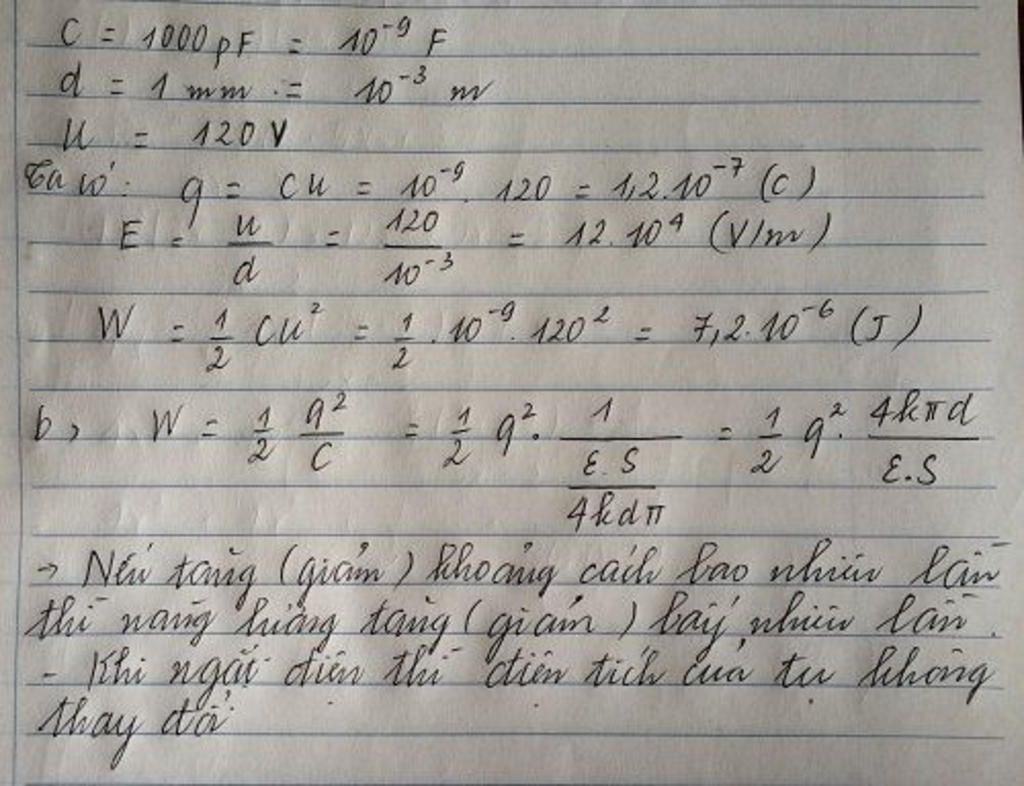 C = 1000 pF = 10⁻⁹ F
d = 1 mm = 10⁻³ m
U = 120 V
Ta có: q = CU = 10⁻⁹. 120 = 1,2.10⁻⁷ (C)
E = u/d = 120/10⁻³ = 12.10⁴ (V/m)
W = 1/2 CU² = 1/2 . 10⁻⁹. 120² = 7,2.10⁻⁶ (J)
b, W = 1/2 q²/C = 1/2 q². 1/(ε.S/4kdπ) = 1/2 q². 4kπd/ε.S
→ Nếu tăng (giảm) khoảng cách bao nhiêu lần
thì năng lượng tăng (giảm) bấy nhiêu lần.
- Khi ngắt điện thì điện tích của tụ không
thay đổi